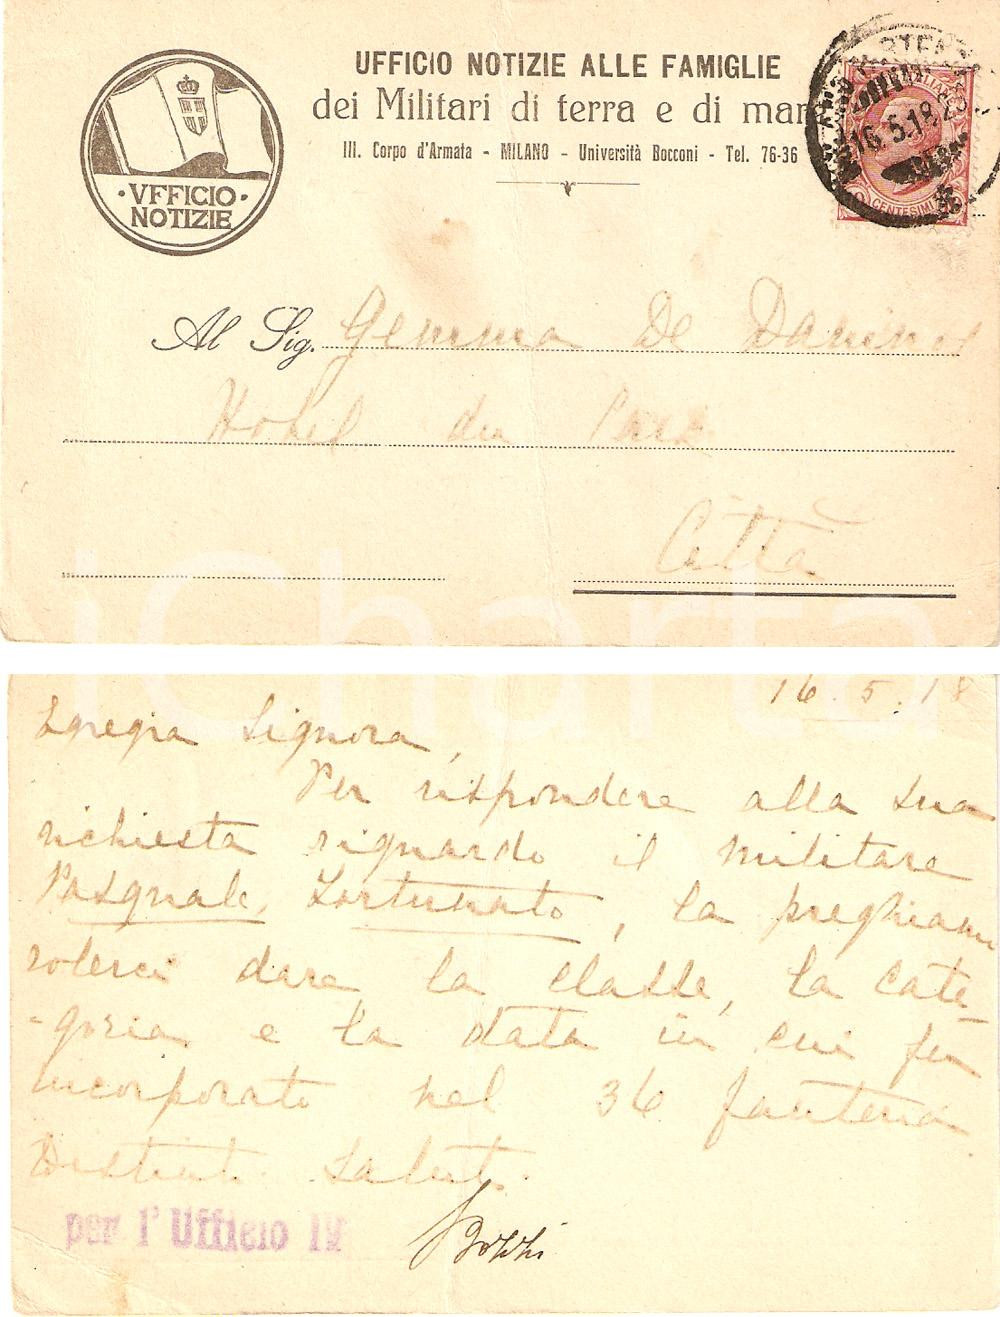 UFFICIO NOTIZIE ALLE FAMIGLIE
dei Militari di terra e di mare
III. Corpo d'Armata - MILANO - Università Bocconi - Tel. 76-36
· VFFICIO ·
NOTIZIE
16.5.18
CENTESIMI
Al Sig. Gemma De
Hotel du Parc
Città
iCharta
16.5.18
Egregia Signora,
Per rispondere alla sua
richiesta riguardo il militare
Pasquale Fortunato, la preghiamo
volerci dare la classe, la cate
-goria e la data in cui fu
incorporato nel 36 fanteria
Distinti saluti.
per l'Ufficio IV